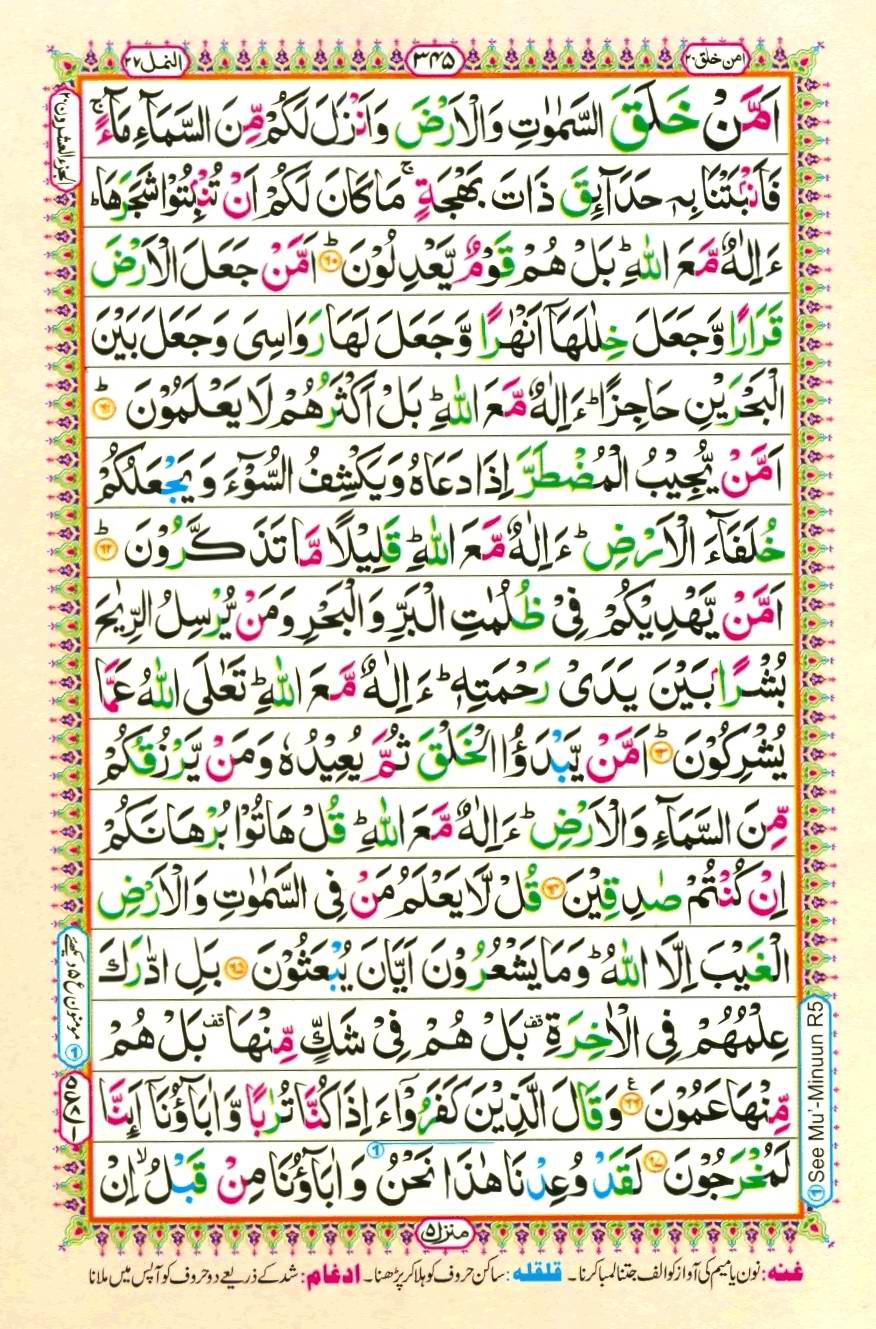 امن خلق ٢٠
٣٤٥
النمل ٢٧
اَمَّنْ خَلَقَ السَّمٰوٰتِ وَالْاَرْضَ وَاَنْزَلَ لَكُمْ مِّنَ السَّمَآءِ مَآءً ۚ
فَاَنْۢبَتْنَا بِهٖ حَدَآئِقَ ذَاتَ بَهْجَةٍ ۚ مَا كَانَ لَكُمْ اَنْ تُنْۢبِتُوْا شَجَرَهَا ؕ
ءَاِلٰهٌ مَّعَ اللّٰهِ ؕ بَلْ هُمْ قَوْمٌ يَّعْدِلُوْنَ ؕ ﴿۶۰﴾ اَمَّنْ جَعَلَ الْاَرْضَ
قَرَارًا وَّجَعَلَ خِلٰلَهَاۤ اَنْهٰرًا وَّجَعَلَ لَهَا رَوَاسِیَ وَجَعَلَ بَيْنَ
الْبَحْرَيْنِ حَاجِزًا ؕ ءَاِلٰهٌ مَّعَ اللّٰهِ ؕ بَلْ اَكْثَرُهُمْ لَا يَعْلَمُوْنَ ؕ ﴿۶۱﴾
اَمَّنْ يُّجِيْبُ الْمُضْطَرَّ اِذَا دَعَاهُ وَيَكْشِفُ السُّوْٓءَ وَيَجْعَلُكُمْ
خُلَفَآءَ الْاَرْضِ ؕ ءَاِلٰهٌ مَّعَ اللّٰهِ ؕ قَلِيْلًا مَّا تَذَكَّرُوْنَ ؕ ﴿۶۲﴾
اَمَّنْ يَّهْدِيْكُمْ فِیْ ظُلُمٰتِ الْبَرِّ وَالْبَحْرِ وَمَنْ يُّرْسِلُ الرِّيٰحَ
بُشْرًاۢ بَيْنَ يَدَیْ رَحْمَتِهٖ ؕ ءَاِلٰهٌ مَّعَ اللّٰهِ ؕ تَعٰلَی اللّٰهُ عَمَّا
يُشْرِكُوْنَ ؕ ﴿۶۳﴾ اَمَّنْ يَّبْدَؤُا الْخَلْقَ ثُمَّ يُعِيْدُهٗ وَمَنْ يَّرْزُقُكُمْ
مِّنَ السَّمَآءِ وَالْاَرْضِ ؕ ءَاِلٰهٌ مَّعَ اللّٰهِ ؕ قُلْ هَاتُوْا بُرْهَانَكُمْ
اِنْ كُنْتُمْ صٰدِقِيْنَ ﴿۶۴﴾ قُلْ لَّا يَعْلَمُ مَنْ فِی السَّمٰوٰتِ وَالْاَرْضِ
الْغَيْبَ اِلَّا اللّٰهُ ؕ وَمَا يَشْعُرُوْنَ اَيَّانَ يُبْعَثُوْنَ ﴿۶۵﴾ بَلِ ادّٰرَكَ
عِلْمُهُمْ فِی الْاٰخِرَةِ ۟ بَلْ هُمْ فِیْ شَكٍّ مِّنْهَا ۟ بَلْ هُمْ
مِّنْهَا عَمُوْنَ ﴿۶۶﴾ وَقَالَ الَّذِيْنَ كَفَرُوْۤا ءَاِذَا كُنَّا تُرٰبًا وَّاٰبَآؤُنَاۤ اَئِنَّا
لَمُخْرَجُوْنَ ﴿۶۷﴾ لَقَدْ وُعِدْنَا هٰذَا نَحْنُ وَاٰبَآؤُنَا مِنْ قَبْلُ ۙ اِنْ
الجزء العشرون ٢٠
① See Mu'-Minuun R5
منزل ۵
غنه: نون یا میم کی آواز کو الف جتنا لمبا کرنا۔ قلقله: ساکن حروف کو ہلا کر پڑھنا۔ ادغام: شد کے ذریعے دو حروف کو آپس میں ملانا